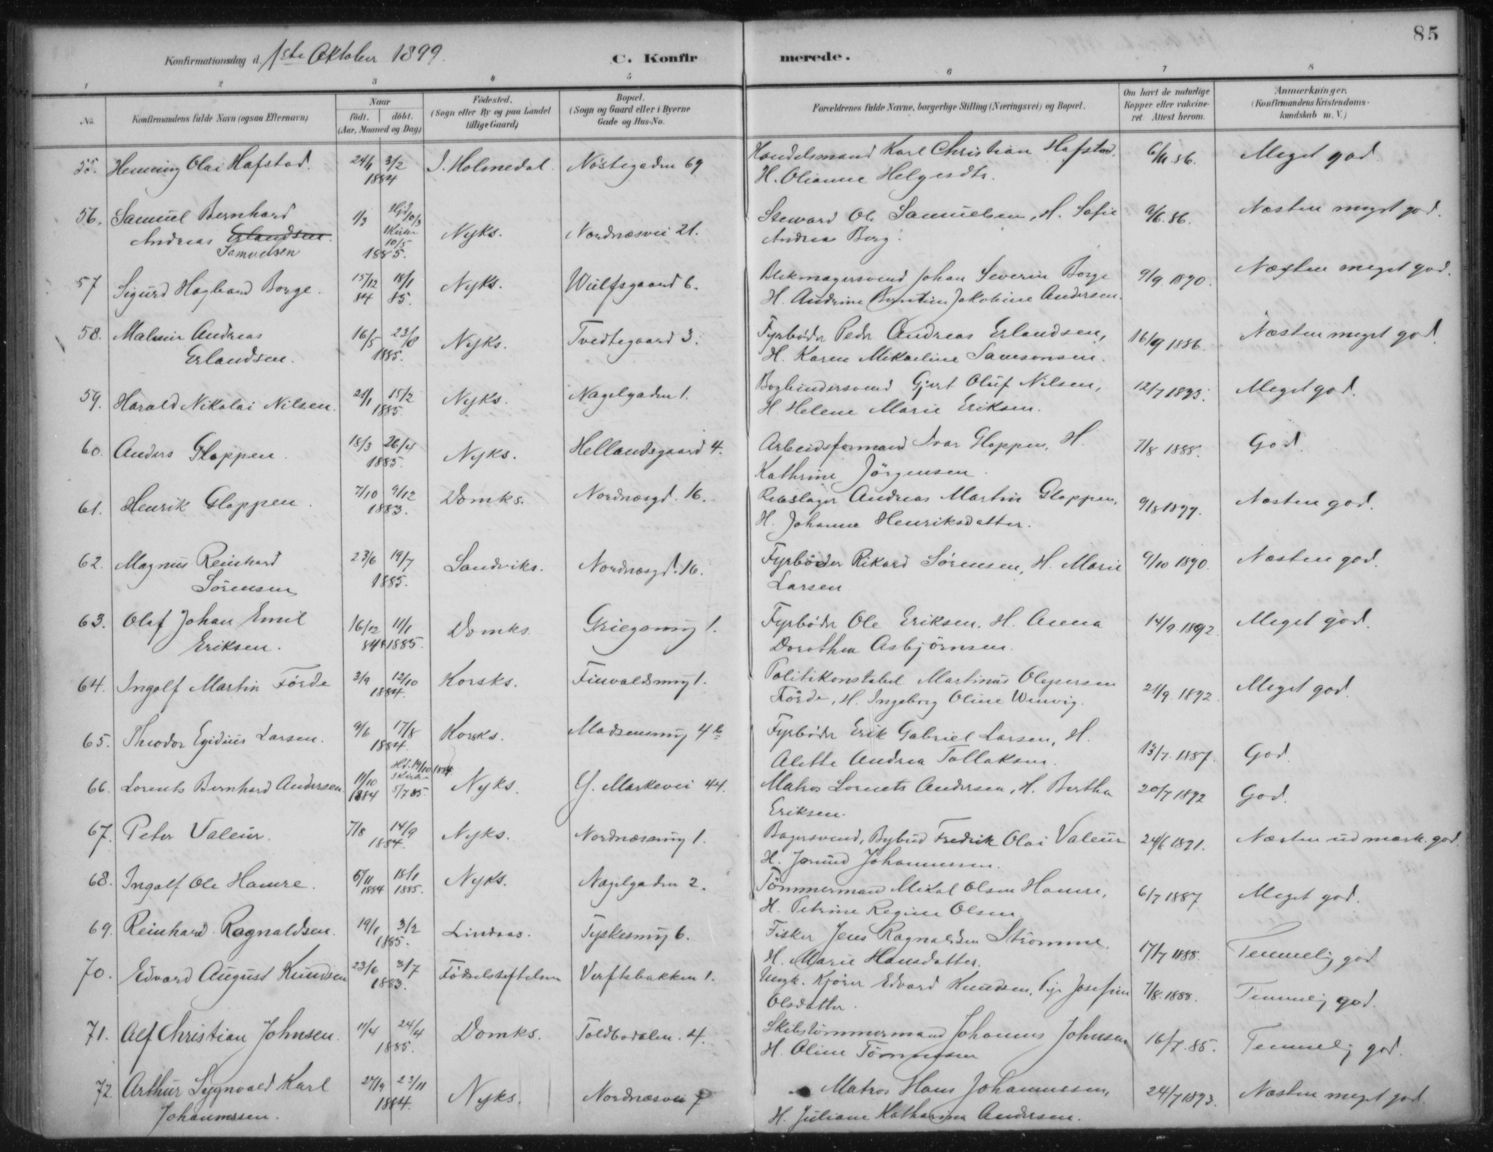 85
Konfirmationsdag d. 1ste Oktober 1899.
C. Konfirmerede.
1 2 3 4 5 6 7 8
No. Konfirmandens fulde Navn (ogsaa Efternavn) Naar født. døbt. (Aar, Maaned og Dag) Fødested. (Sogn eller By og paa Landet tillige Gaard) Bopæl. (Sogn og Gaard eller i Byerne Gade og Hus-No. Forældrenes fulde Navne, borgerlige Stilling (Næringsvei) og Bopæl. Om havt de naturlige Kopper eller vaksineret. Attest herom. Anmærkninger. (Konfirmandens Kristendomskundskab m. V.)
55. Henning Olai Hafstad. 3/2 1884 Holmedal Nöstegaden 69 Handelsmand Karl Christian Hafstad. Meget god
H. Olianne Helgesdtr.
56. Samuel Bernhard Andreas Erlandsen Samuelsen 1/3 1885. Nyks. Nordnæsvei 21. Steward Ole Samuelsen, H. Sofie 9/6 86. Næsten meget god.
Andrea Berg.
57 Sigurd Hagbard Borge. 15/12 84 18/1 85. Nyks. Wulfsgaard 6. Blikmagersvend Johan Severin Borge 9/9 1890. Næsten meget god.
H. Andrine Jakobine Andersen.
58. Malvin Andreas Erlandsen. 16/5 1885. Nyks. Tvedtegaard 3. Fyrböder Peder Andreas Erlandsen, 16/9 1886. Næsten meget god.
H. Karen Mikaeline Samsonsen.
59. Harald Nikolai Nilsen. 15/2 1885. Nyks. Nagelgaden 1. Bogbindersvend Gjert Oluf Nilsen, 12/7 1893. Meget god.
H Helene Marie Eriksen.
60. Anders Gloppen. 18/3 26/4 1885. Nyks. Hellandsgaard 4. Arbeidsformand Ivar Gloppen, H. 7/8 1888. God.
Kathrine Jörgensen.
61. Henrik Gloppen. 7/10 9/12 1883. Domks. Nordnæsgd. 16. Rebslager Andreas Martin Gloppen, Næsten god.
H. Johanne Henriksdatter.
62. Magnus Reinhard Sörensen 23/6 19/7 1885. Sandviks. Nordnæsgd. 16. Fyrböder Rikard Sörensen, H. Marie 9/10 1890. Næsten god.
Larsen
63. Olaf Johan Emil Eriksen. 16/12 11/1 1885. Domks. Griegsmug 1. Fyrböder Ole Eriksen. H. Anna 14/9 1892. Meget god.
Dorothea Asbjörnsen.
64. Ingolf Martin Förde 3/9 12/10 1884. Korsks. 1. Politikonstabel Martinus Olesen 21/9 1892. Meget god.
Förde, H. Ingeborg Oline
65. Theodor Egidius Larsen. 9/6 17/8 1884. Korsks. Madsensmug 4 Fyrböder Erik Gabriel Larsen, H. 13/7 1887. God.
Alette Andrea Tollaksen.
66. Lorents Bernhard Andersen 11/10 1884 5/7 85 Nyks. Markevei 44. Matros Lorents Andersen, H. Bertha 20/7 1892 God.
Eriksen.
67. Peter Valeur. 7/8 14/9 1884. Nyks. Nordnæsmug 1. Bagersvend, Bybud Fredrik Olai Valeur 24/6 1891. Næsten udmærk. god.
H. Johannesen.
68. Ingolf Ole Hamre. 1884 18/1 1885. Nyks. Nægelgaden 2. Tömmermand Mikal Olsen Hamre, 6/7 1887 Meget god.
H. Petrine Regine Olsen
69. Reinhard Ragnaldsen. 19/1 3/2 1885. Lindaas. Tyskesmug 6. Fisker Jens Ragnaldsen Strömme. 17/7 1888. Temmelig god
H. Marie Hansdatter.
70. Edvard August Knudsen 23/6 3/7 1883. Födselsstiftelsen Verftsbakken 1. Ungk. Kjörer Edvard Knudsen, Pige Josefine 7/8 1888. Temmelig god.
Olsdatter.
71. Alf Christian Johnsen. 11/4 24/4 1885. Domks. Toldbodalm. 4. Skibstömmermand Johannes Johnsen 16/7 85. Temmelig god.
H. Oline Tönnesen
72. Arthur Sygnvald Karl Johannesen. 27/9 23/11 1884. Nyks. Nordnæsvei 7 Matros Hans Johannessen, 24/7 1893. Næsten meget god.
H. Juliane Katharina Andersen.